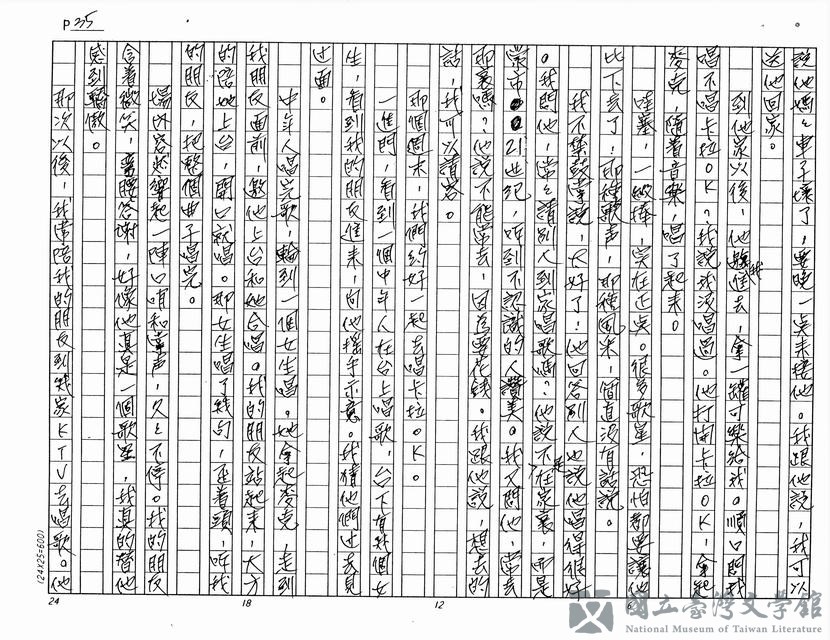 P35
說他媽々車子壞了，要晚一点來接他。我跟他說，我可以
送他回家。
到他家以後，他邀我進去，拿一罐可樂給我。順口問我
唱不唱卡拉OK？我說我沒唱過。他打開卡拉OK，拿起
麥克，隨着音樂，唱了起來。
哇塞，一級棒，实在正点。很多歌星，恐怕都要讓他
比下去了！那種歌声，那種風采，簡直沒有話說。
我不禁鼓掌說，太好了！他回答別人也說他唱得很好
。我問他，常々請別人到家唱歌嗎？他說不是在家裏，而是
蒙市21世紀，听到不認識的人讚美。我又問他，常去
那裏嗎？他說不能常去，因為要花錢。我跟他說，想去的
話，我可以請客。
那個週末，我們約好一起去唱卡拉OK。
一進門，看到一個中年人在台上唱歌，台下有幾個女
生，看到我的朋友進來，向他搖手示意。我猜他們过去見
过面。
中年人唱完歌，輪到一個女生唱。她拿起麥克，走到
我朋友面前，邀他上台和她合唱。我的朋友站起來，大方
的陪她上台，開口就唱。那女生唱了幾句，歪着頭，听我
的朋友，把整個曲子唱完。
場內忽然響起一陣口哨和掌声，久々不停。我的朋友
含着微笑，彎腰答謝，好像他真是一個歌星，我真的替他
感到驕傲。
那次以後，我常陪我的朋友到幾家KTV去唱歌。他
24
18
12
6
(24X25=600)
國立臺灣文學館
National Museum of Taiwan Literature